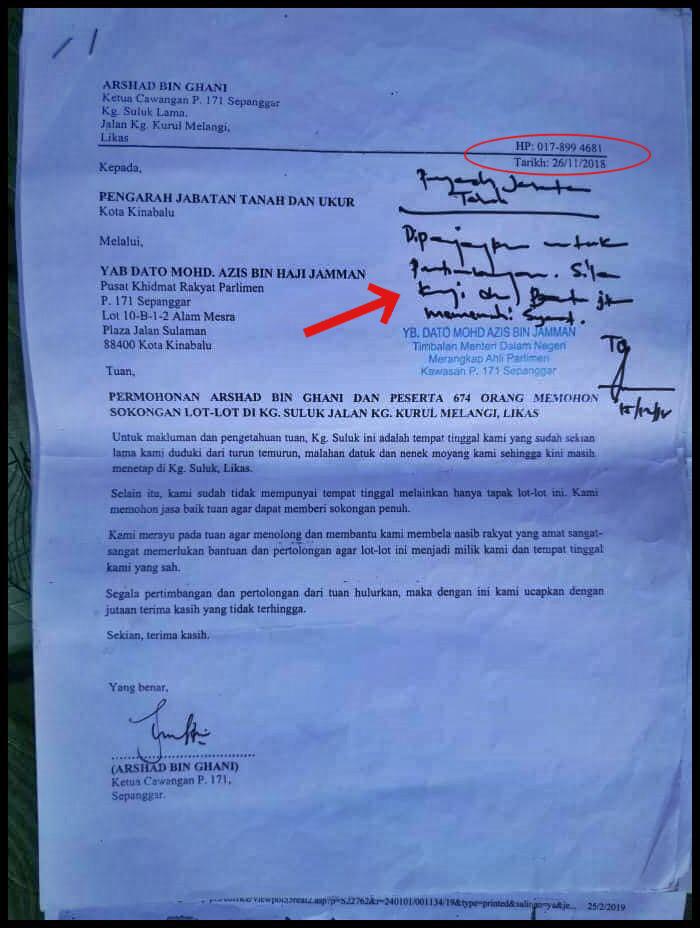 ARSHAD BIN GHANI
Ketua Cawangan P. 171 Sepanggar
Kg. Suluk Lama.
Jalan Kg. Kurul Melangi,
Likas
HP: 017-899 4681
Tarikh: 26/11/2018
Kepada,
Pengarah Jabatan
Tanah
PENGARAH JABATAN TANAH DAN UKUR
Kota Kinabalu
Melalui,
Dipanjangkan untuk
Pertimbangan. Sila
kaji dan Bantu jk
memenuhi Syarat.
YAB DATO MOHD. AZIS BIN HAJI JAMMAN
Pusat Khidmat Rakyat Parlimen
P. 171 Sepanggar
Lot 10-B-1-2 Alam Mesra
Plaza Jalan Sulaman
88400 Kota Kinabalu
YB. DATO MOHD AZIS BIN JAMMAN
Timbalan Menteri Dalam Negeri
Merangkap Ahli Parlimen
Kawasan P. 171 Sepanggar
Tuan,
PERMOHONAN ARSHAD BIN GHANI DAN PESERTA 674 ORANG MEMOHON
SOKONGAN LOT-LOT DI KG. SULUK JALAN KG. KURUL MELANGI, LIKAS
Untuk makluman dan pengetahuan tuan, Kg. Suluk ini adalah tempat tinggal kami yang sudah sekian
lama kami duduki dari turun temurun, malahan datuk dan nenek moyang kami sehingga kini masih
menetap di Kg. Suluk, Likas.
Selain itu, kami sudah tidak mempunyai tempat tinggal melainkan hanya tapak lot-lot ini. Kami
memohon jasa baik tuan agar dapat memberi sokongan penuh.
Kami merayu pada tuan agar menolong dan membantu kami membela nasib rakyat yang amat sangat-
sangat memerlukan bantuan dan pertolongan agar lot-lot ini menjadi milik kami dan tempat tinggal
kami yang sah.
Segala pertimbangan dan pertolongan dari tuan hulurkan, maka dengan ini kami ucapkan dengan
jutaan terima kasih yang tidak terhingga.
Sekian, terima kasih.
Yang benar,
(ARSHAD BIN GHANI)
Ketua Cawangan P. 171,
Sepanggar.
25/2/2019